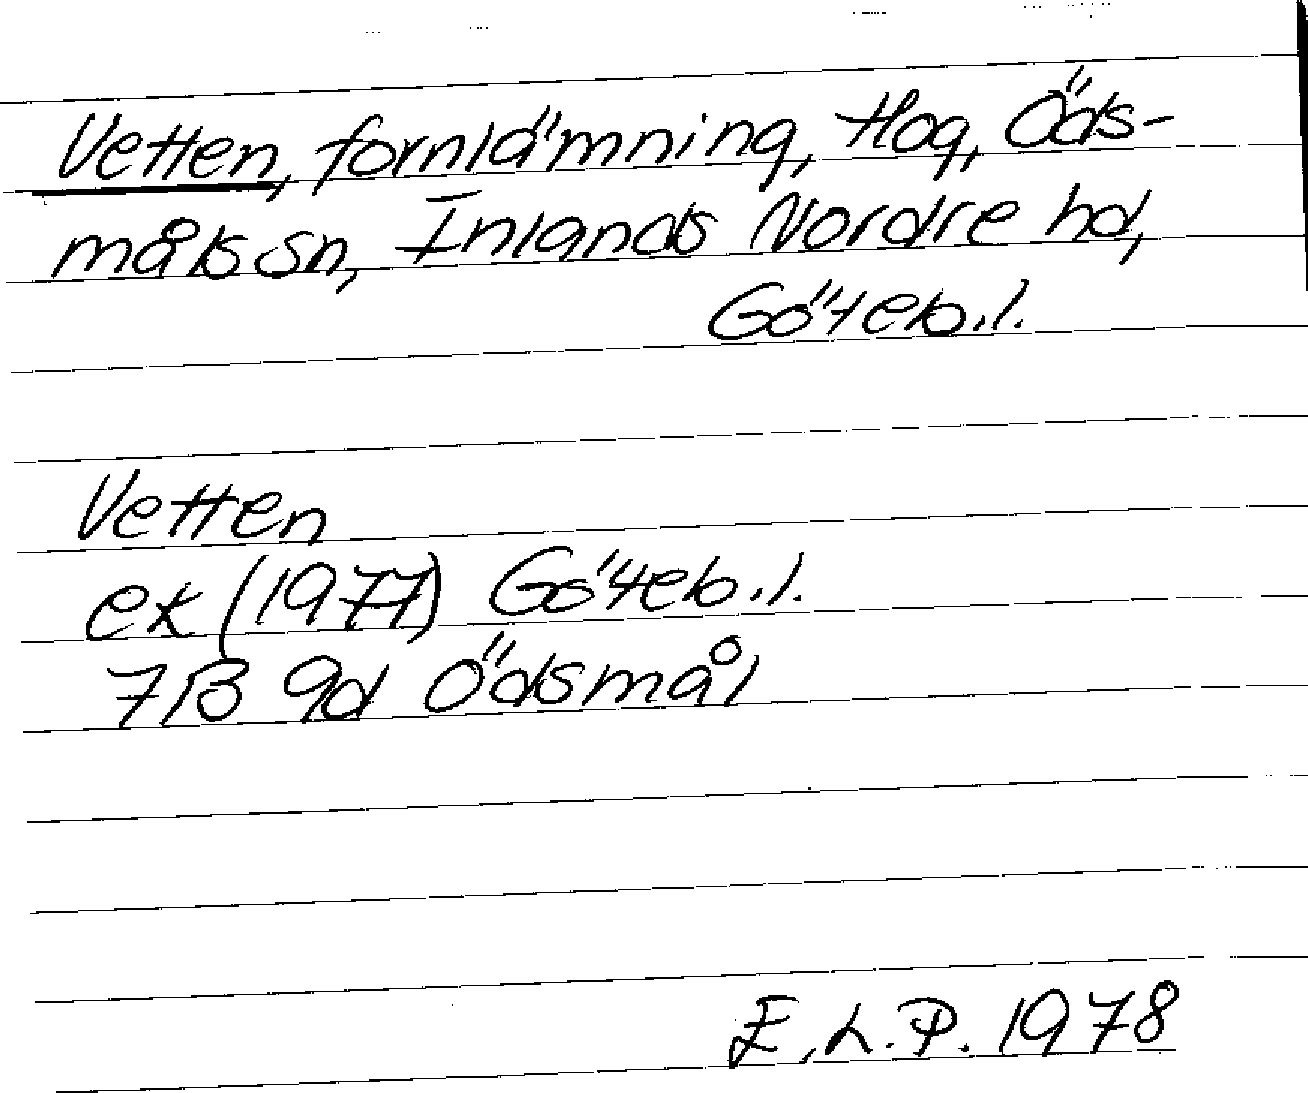 Vetten, fornlämning, Hog, Öds-
måls sn, Inlands Nordre hd,
Göteb.l.
Vetten
ek (1977) Göteb.l.
7B 9d Ödsmål
E.L.P. 1978